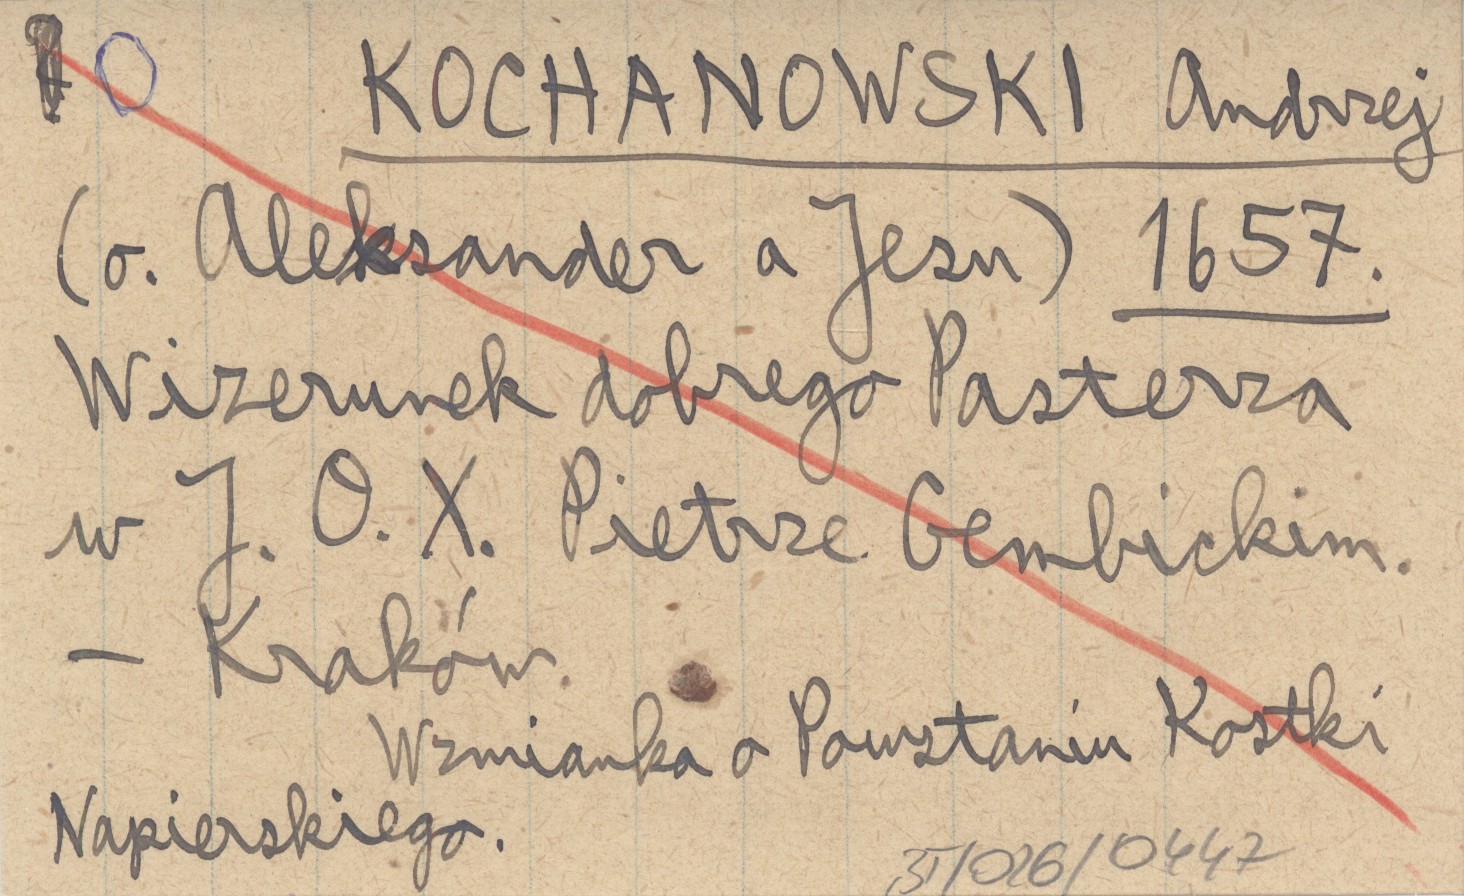 O KOCHANOWSKI Andrzej
(o. Aleksander a Jesu) 1657.
Wizerunek dobrego Pasterza
w J. O. X. Pietrze Gembickim.
– Kraków.
Wzmianka o Powstaniu Kostki
Napierskiego.
/026/0447